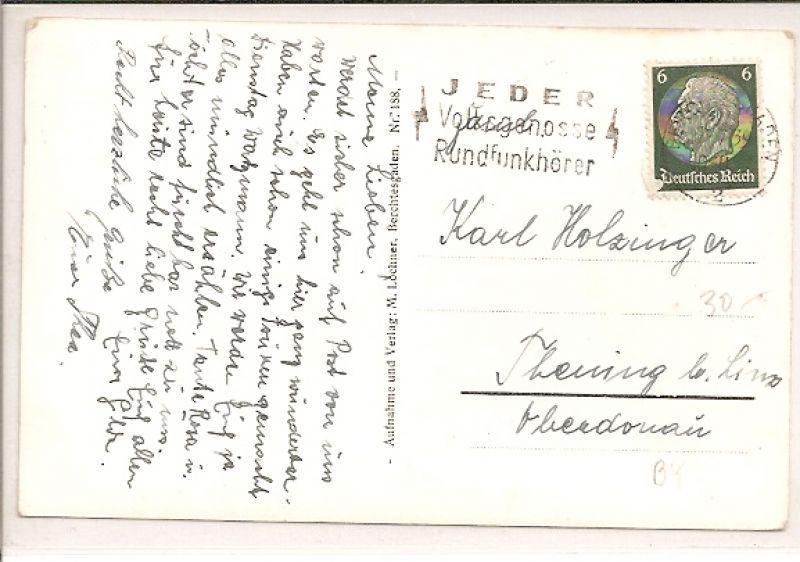 Meine Lieben!
Werdet sicher schon auf Post von uns
warten. Es geht uns hier ganz wunderbar.
Haben auch schon einige Touren gemacht
Dienstag Watzmann. Wir werden Euch ja
alles mündlich erzählen. Tante Rosa u.
sind furchtbar nett zu uns.
Für heute recht liebe Grüße Euch allen
Eure
Recht herzliche Grüße
Eure Thea.
- Aufnahme und Verlag: M. Lochner, Berchtesgaden. Nr. 188. -
JEDER
Volksgenosse
Rundfunkhörer
6 6
Deutsches Reich
2
Karl Holzinger
30
Thening b. Linz
Oberdonau